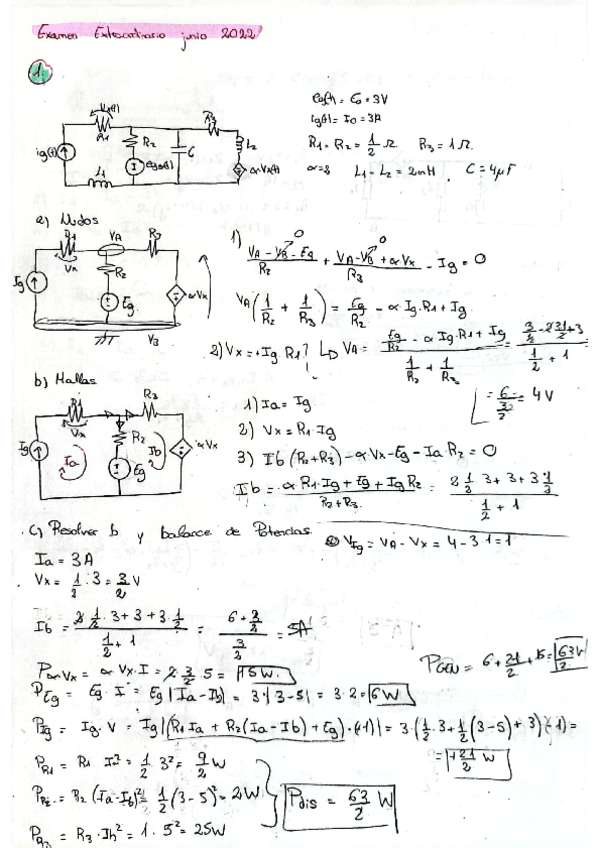 Examen Extraordinario junio 2022
1.
Vx(t)
R1
R3
ig(t)
R2
C
L2
eg(t)
αVx(t)
L1
eg(t) = E0 = 3V
ig(t) = I0 = 3A
R1 = R2 = 1/2 Ω. R3 = 1Ω.
α = 2 L1 - L2 = 2mH. C = 4μF
a) Nudos
R1 VA R3
Vx
R2
Ig
Eg
αVx
VB
1) (VA - VB - Eg)/R2 + (VA - VB + αVx)/R3 - Ig = 0
0 0
VA(1/R2 + 1/R3) = Eg/R2 - α Ig·R1 + Ig
2) Vx = +Ig R1 ↳ VA = (Eg/R2 - α Ig·R1 + Ig)/(1/R2 + 1/R3) =
= 6/ = 4V
b) Mallas
R1 R3
Vx
R2
Ig
Ia Ib
αVx
Eg
1) Ia = Ig.
2) Vx = R1·Ig
3) Ib(R2+R3) - αVx - Eg - Ia·R2 = 0
Ib = (α R1·Ig + Eg + Ig R2)/(R2+R3) = (2 1/2 3 + 3 + 3 1/2)/(1/2 + 1)
c) Resolver b y balance de Potencias.
VIg = VA - Vx = 4 - 3·1 = 1
Ia = 3A
Vx = 1/2 · 3 = 3/2 V
Ib = (2·1/2·3 + 3 + 3·1/2)/(1/2 + 1) = = 5A
PαVx = αVx·I = 2·3/2·5 = 15W.
PGEN = 6 + 21/2 + 15 = 63/2 W
PEg = Eg·I = Eg|Ia-Ib| = 3·|3-5| = 3·2 = 6W
PIg = Ig·V = Ig|(R1 Ia + R2(Ia-Ib) + Eg)·(-1)| = 3·(1/2·3 + 1/2(3-5) + 3)(-1) =
= +21/2 W
PR1 = R1 I² = 1/2 3² = 9/2 W
PR2 = R2 (Ia-Ib)² = 1/2 (3-5)² = 2W
Pdis = 63/2 W
PR3 = R3·Ib² = 1·5² = 25W